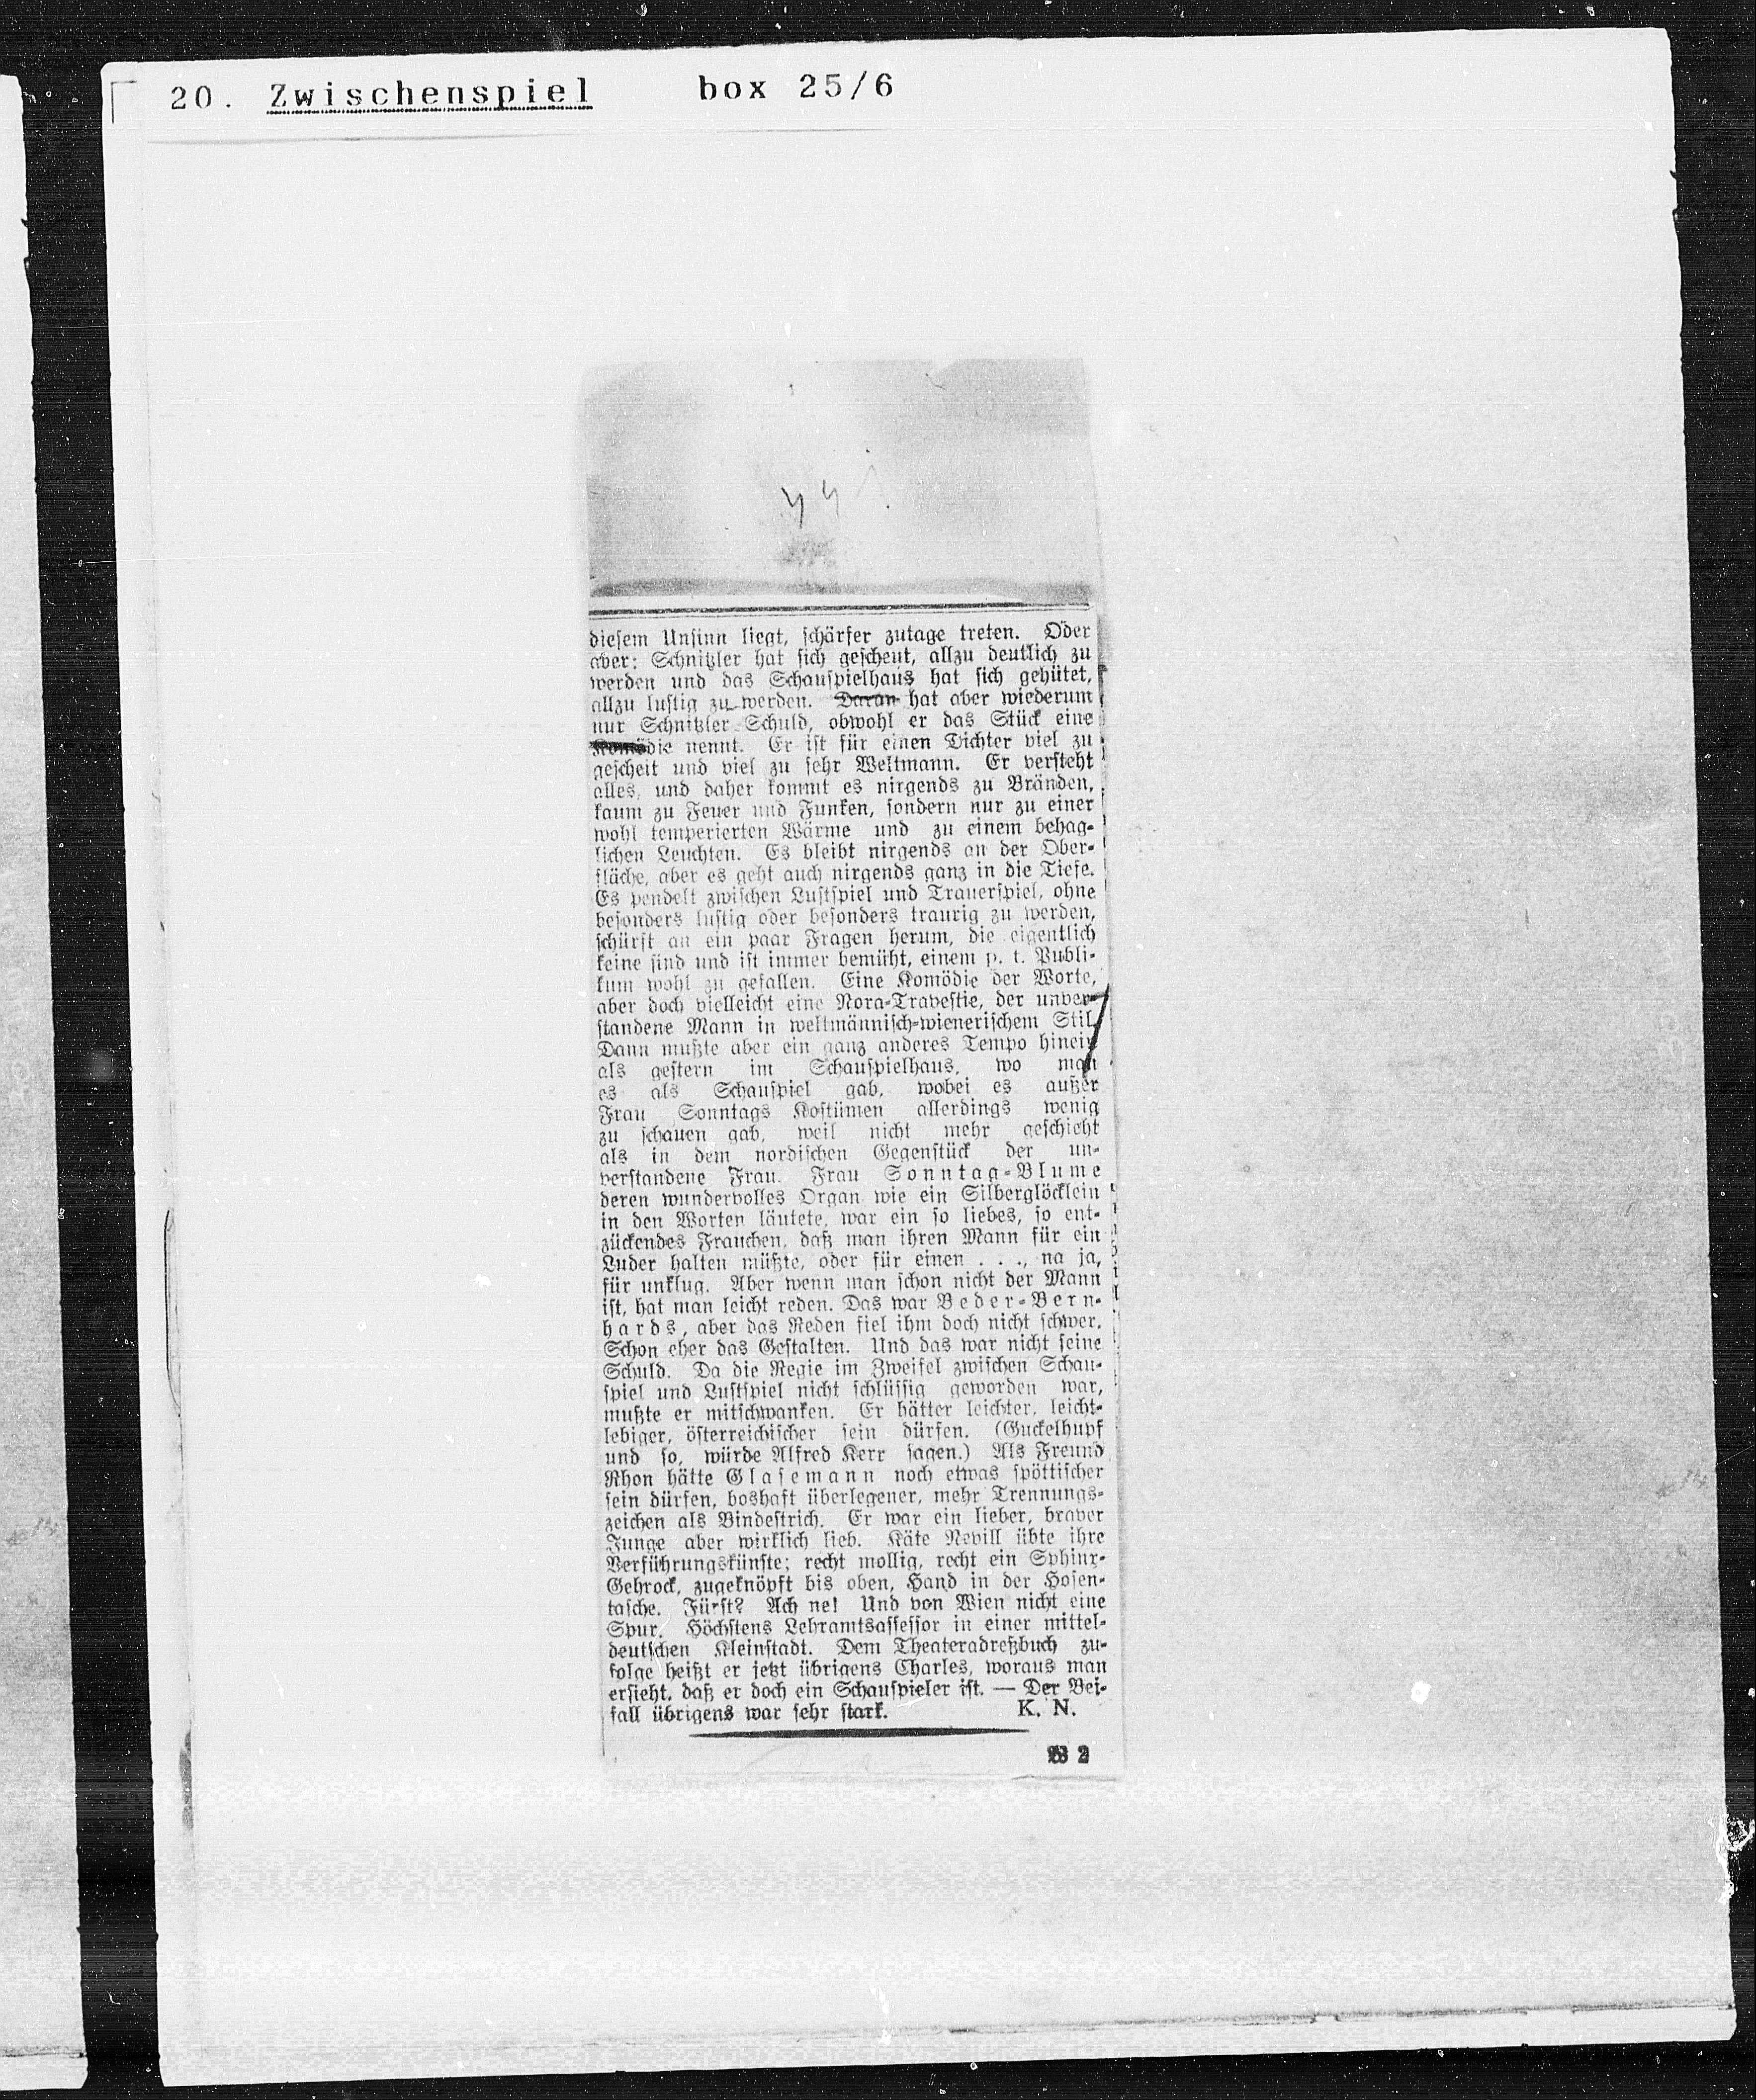 20. Zwischenspiel box 25/6
diesem Unsinn liegt, schärfer zutage treten. Oder
aber: Schnitzler hat sich gescheut, allzu deutlich zu
werden und das Schauspielhaus hat sich gehütet,
allzu lustig zu werden. Daran hat aber wiederum
nur Schnitzler Schuld, obwohl er das Stück eine
Komödie nennt. Er ist für einen Dichter viel zu
gescheit und viel zu sehr Weltmann. Er versteht
alles, und daher kommt es nirgends zu Bränden,
kaum zu Feuer und Funken, sondern nur zu einer
wohl temperierten Wärme und zu einem behag-
lichen Leuchten. Es bleibt nirgends an der Ober-
fläche, aber es geht auch nirgends ganz in die Tiefe.
Es pendelt zwischen Lustspiel und Trauerspiel, ohne
besonders lustig oder besonders traurig zu werden,
schürft an ein paar Fragen herum, die eigentlich
keine sind und ist immer bemüht, einem p. t. Publi-
kum wohl zu gefallen. Eine Komödie der Worte,
aber doch vielleicht eine Nora-Travestie, der unver-
standene Mann in weltmännisch-wienerischem Stil.
Dann mußte aber ein ganz anderes Tempo hinein
als gestern im Schauspielhaus, wo man
es als Schauspiel gab, wobei es außer
Frau Sonntags Kostümen allerdings wenig
zu schauen gab, weil nicht mehr geschieht
als in dem nordischen Gegenstück der un-
verstandene Frau. Frau Sonntag-Blume
deren wundervolles Organ wie ein Silberglöcklein
in den Worten läutete, war ein so liebes, so ent-
zückendes Frauchen, daß man ihren Mann für ein
Luder halten müßte, oder für einen . . ., na ja,
für unklug. Aber wenn man schon nicht der Mann
ist, hat man leicht reden. Das war Beder-Bern-
hards, aber das Reden fiel ihm doch nicht schwer.
Schon eher das Gestalten. Und das war nicht seine
Schuld. Da die Regie im Zweifel zwischen Schau-
spiel und Lustspiel nicht schlüssig geworden war,
mußte er mitschwanken. Er hätter leichter, leicht-
lebiger, österreichischer sein dürfen. (Guckelhupf
und so, würde Alfred Kerr sagen.) Als Freund
Rhon hätte Glasemann noch etwas spöttischer
sein dürfen, boshaft überlegener, mehr Trennungs-
zeichen als Bindestrich. Er war ein lieber, braver
Junge aber wirklich lieb. Käte Nevill übte ihre
Verführungskünste; recht mollig, recht ein Sphinx-
Gehrock, zugeknöpft bis oben, Hand in der Hosen-
tasche. Fürst? Ach ne! Und von Wien nicht eine
Spur. Höchstens Lehramtsassessor in einer mittel-
deutschen Kleinstadt. Dem Theateradreßbuch zu-
folge heißt er jetzt übrigens Charles, woraus man
ersieht, daß er doch ein Schauspieler ist. — Der Bei-
fall übrigens war sehr stark. K. N.